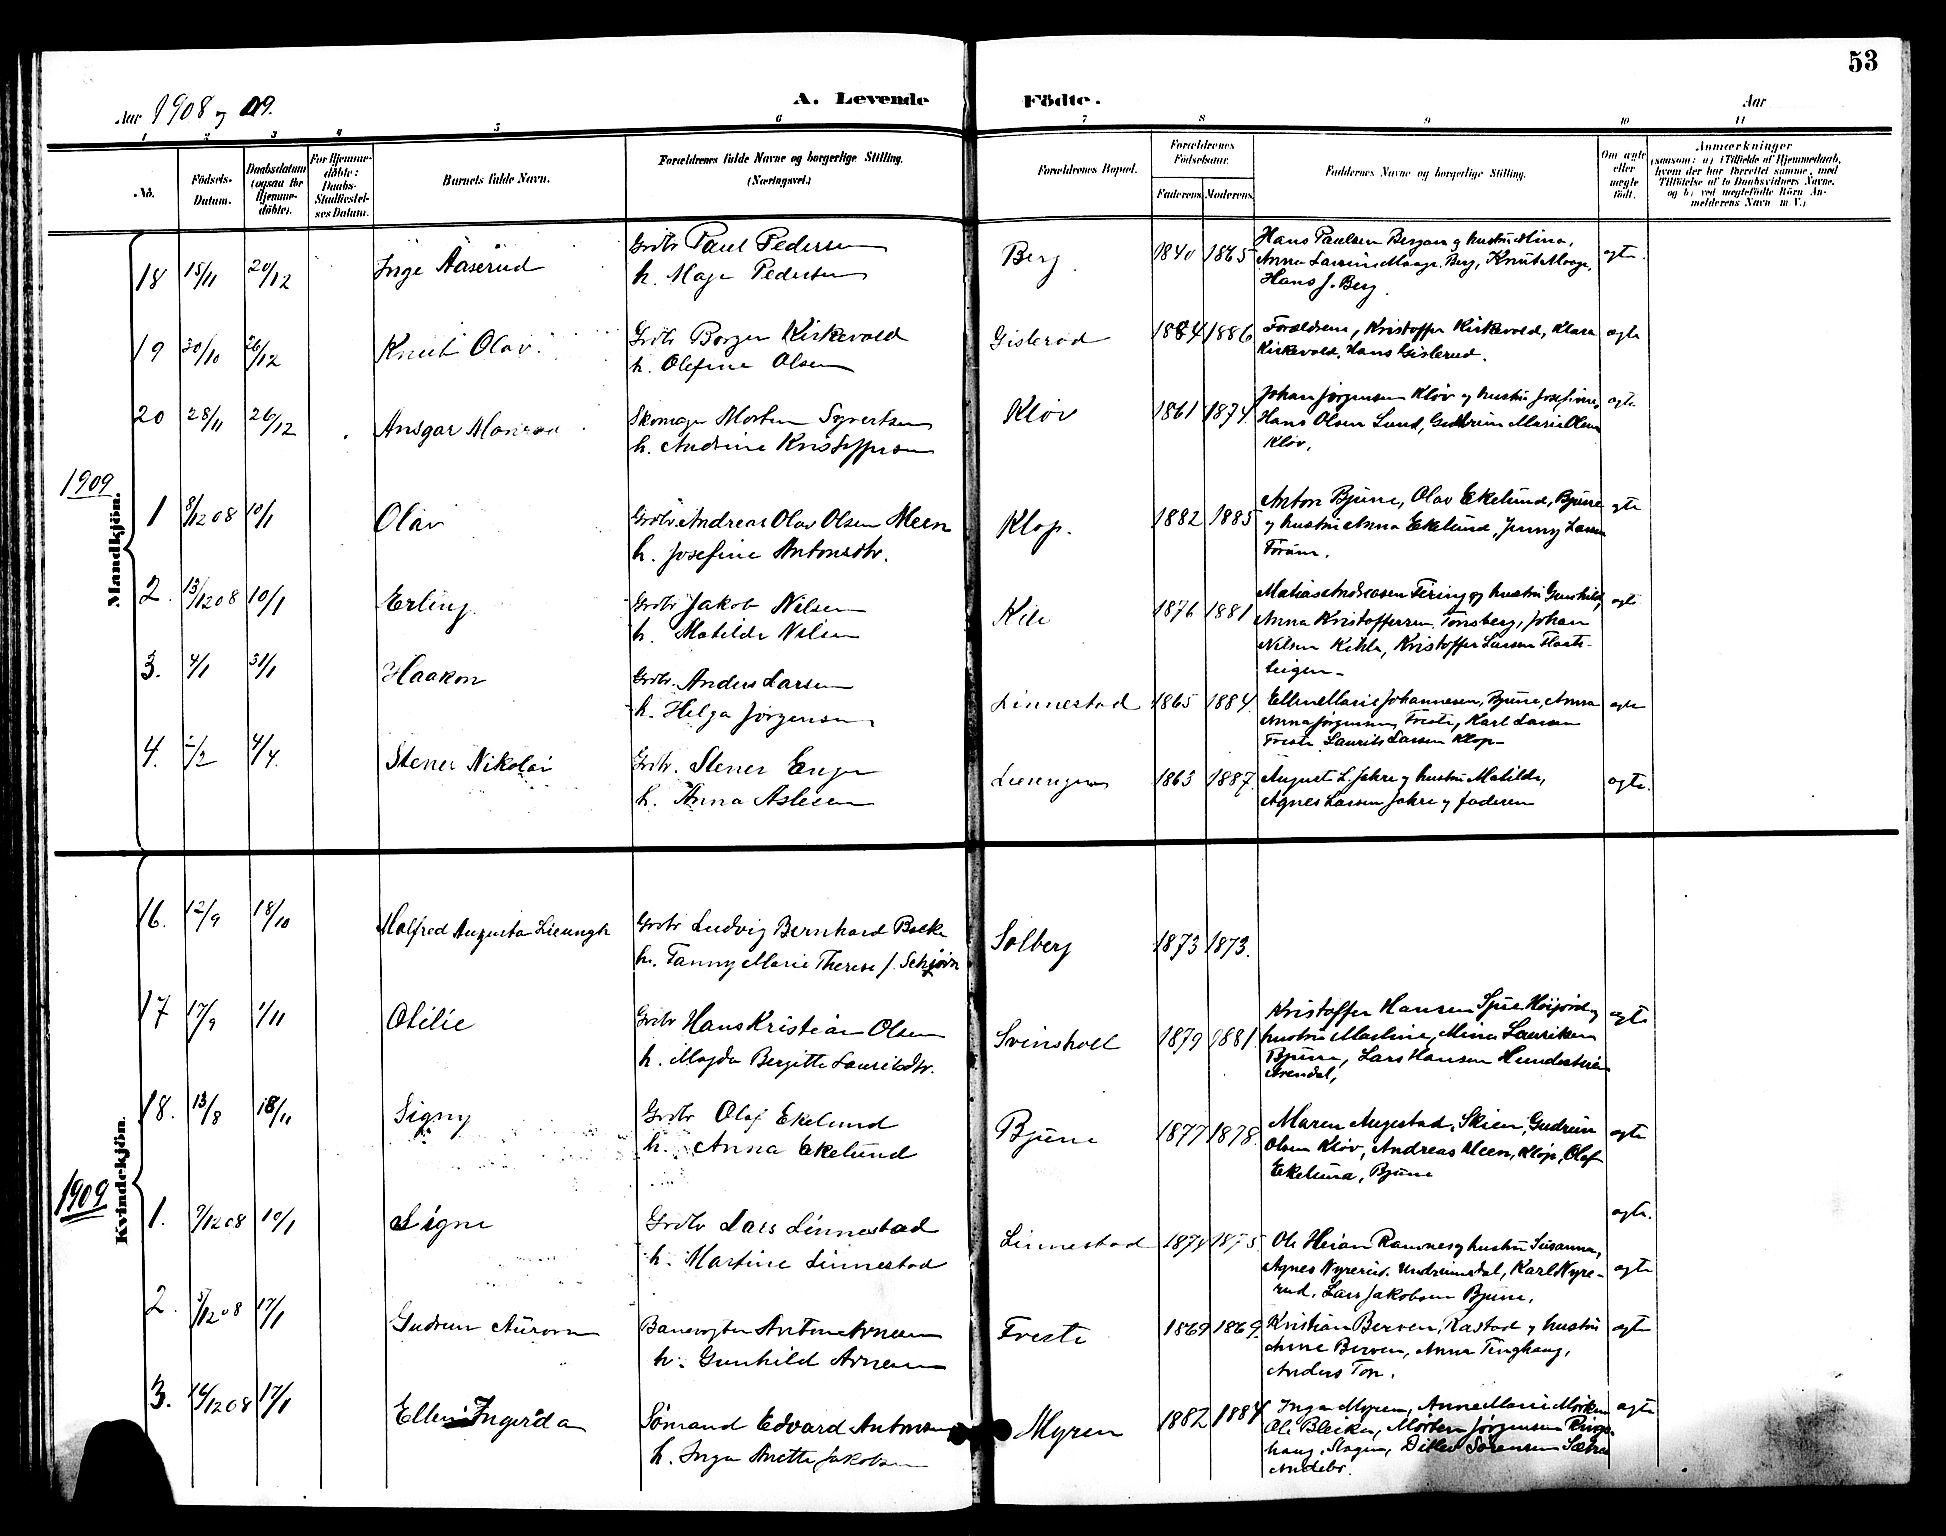 53
Aar 1908 og 09. A. Levende Födte. Aar
1 2 3 4 5 6 7 8 9 10 11
No.
Födsels-
Datum.
Daabsdatum
(ogsaa for
Hjemme-
döbte).
For Hjemme-
döbte:
Daabs-
Stadfæstel-
ses Datum.
Barnets fulde Navn.
Forældrenes fulde Navne og borgerlige Stilling.
(Næringsvei.)
Forældrenes Bopæl.
Forældrenes
Födselsaar.
Faderens Moderens
Faddernes Navne og borgerlige Stilling.
Om ægte
eller
uægte
födt.
Anmærkninger
(saasom: a) i Tilfælde af Hjemmedaab,
hvem der har forrettet samme, med
Tilföielse af to Daabsvidners Navne,
og b) ved uægtefödte Börn An-
melderens Navn m. V.)
Mandkjön.
18 15/11 20/12 Inge Aaserud Grdbr Paul Pedersen
h. Maje Pedersen
Berg. 1840 1865
Hans Paulsen Bergan og hustru Mina,
Anna Laurine Maage. Berg, Knut Maage,
Hans J. Berg.
ægte.
19 30/10 26/12 Knut Olav. Grdbr Borger Kirkevold
h. Olefine Olsen
Gislerød 1884 1886
Forældrene, Kristoffer Kirkevold, Klara
Kirkevold, Hans Gislerud.
ægte
20 28/11 26/12 Ansgar Skomager Morten Syvertsen
h. Andrine Kristoffersen
Kløv 1861 1874
Johan Jørgensen Kløv og hustru Josefine,
Hans Olsen Lund, Gudrun Marie Olsen
Kløv.
ægte
1909
1 8/12 08 10/1 Olav Grdbr. Andreas Olav Olsen Meen
h. Josefine Antonsdtr.
Klop. 1882 1885
Anton Bjune, Olav Ekelund, Bjune
og hustru Anna Ekelund, Jenny Larsen
Forum.
ægte
2. 13/12 08 10/1 Erling. Grdbr Jakob Nilsen
h. Matilde Nilsen
1876 1881
Matias Andreasen Fering og hustru Gunhild,
Anna Kristoffersen Tønsberg, Johan
Nilsen Kihle, Kristoffer Larsen Flaate-
ægte
3. 4/1 31/1 Haakon Grdbr. Anders Larsen
h. Helga Jørgensen
Linnestad 1865 1884
Ellen Marie Johannesen, Bjune, Anna
Anna Jørgensen, Freste, Karl Larsen
Freste, Laurits Larsen Klop
ægte
4. /2 4/4. Stener Nikolai Grdbr. Stener Enger
h. Anna Aslesen
1863 1887.
August L. Jahre og hustru Matilde,
Agnes Larsen Jahre og faderen
ægte.
Kvindekjön.
16. 12/9 18/10 Malfred Augusta Grdbr Ludvig Bernhard Bakke
h. Fanny Marie Therese f.
Solberg 1873 1873.
17 17/9 1/11 Otilie Grdbr Hans Kristian Olsen
h. Magda Bergitte Lauritsdtr.
Svinsholt 1879 1881.
Kristoffer Hansen Høijord og
hustru Martine, Mina Lauriksen
Bjune, Lars Hansen
Arendal,
ægte
18. 13/8 18/11 Signy Grdbr Olaf Ekelund
h. Anna Ekelund
Bjune 1877 1878.
Maren Augestad, Skien, Gudrun
Olsen Kløv, Andreas Meen, Klop, Olaf
Ekelund, Bjune
ægte
1909
1. 9/12 08 10/1 Signe Grdbr Lars Linnestad
h. Martine Linnestad
Linnestad 1874 1875.
Ole Heian Ramnes og hustru Susanna,
Agnes Nyrerud, Undrumsdal, Karl Nyre-
rud, Lars Jakobsen Bjune.
ægte.
ægte
2. 5/12 08 17/1 Gudrun Aurora Banevogter Anton Arnesen
h. Gunhild Arnesen
Freste 1869 1869.
Kristian Berven, Rastad og hustru
Anne Berven, Anna Tinghaug,
Anders Ton.
ægte
3. 14/12 08 17/1 Ellen Ingerda Sømand Edvard Antonsen
h. Inga Anette Jakobsen
Myren 1882 1884.
Inga Myren, Anne Marie Mørken
Ole Bleiken, Morten Jørgensen Rings-
haug, Slagen, Ditlev Sørensen Sætre
Andebo.
ægte